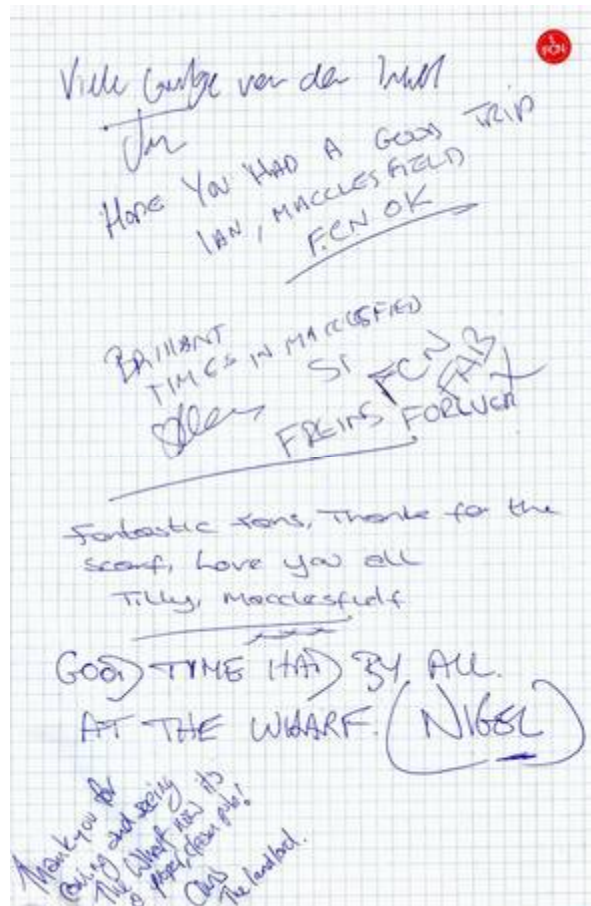 FCN
Viele Grüße von der Insel
Jan
HOPE YOU HAD A GOOD TRIP
IAN, MACCLESFIELD
F.C.N OK
BRILLIANT
TIMES IN MACCLESFIELD
SI FCN
FAB
FREINS FOREVER
Fantastic fans, Thanks for the
scarf, Love you all
Tilly, Macclesfield
GOOD TIME HAD BY ALL.
AT THE WHARF. (NIGEL)
Thank you for
coming and seeing
The Wharf now its
a proper pub!
Chris
The landlord.